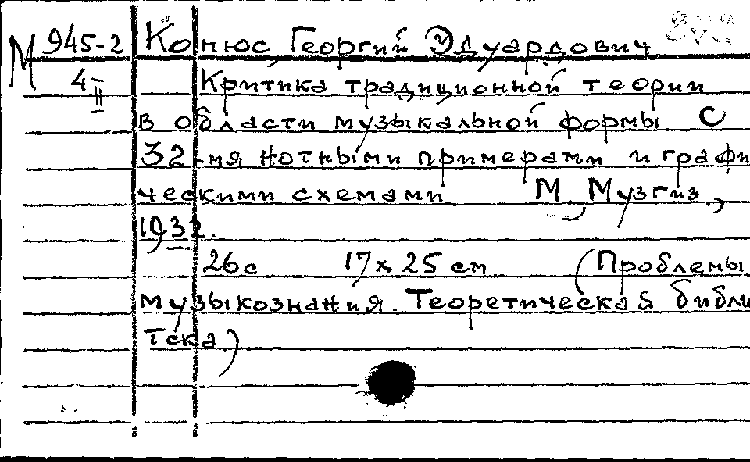 М 945-2 Конюс Георгий Эдуардович
4-II Критика традиционной теории
в области музыкальной формы С
32-мя нотными примерами и графи
ческими схемами М, Музгиз,
1932.
26с 17х25 см (Проблемы
музыкознания. Теоретическая библи
тека)